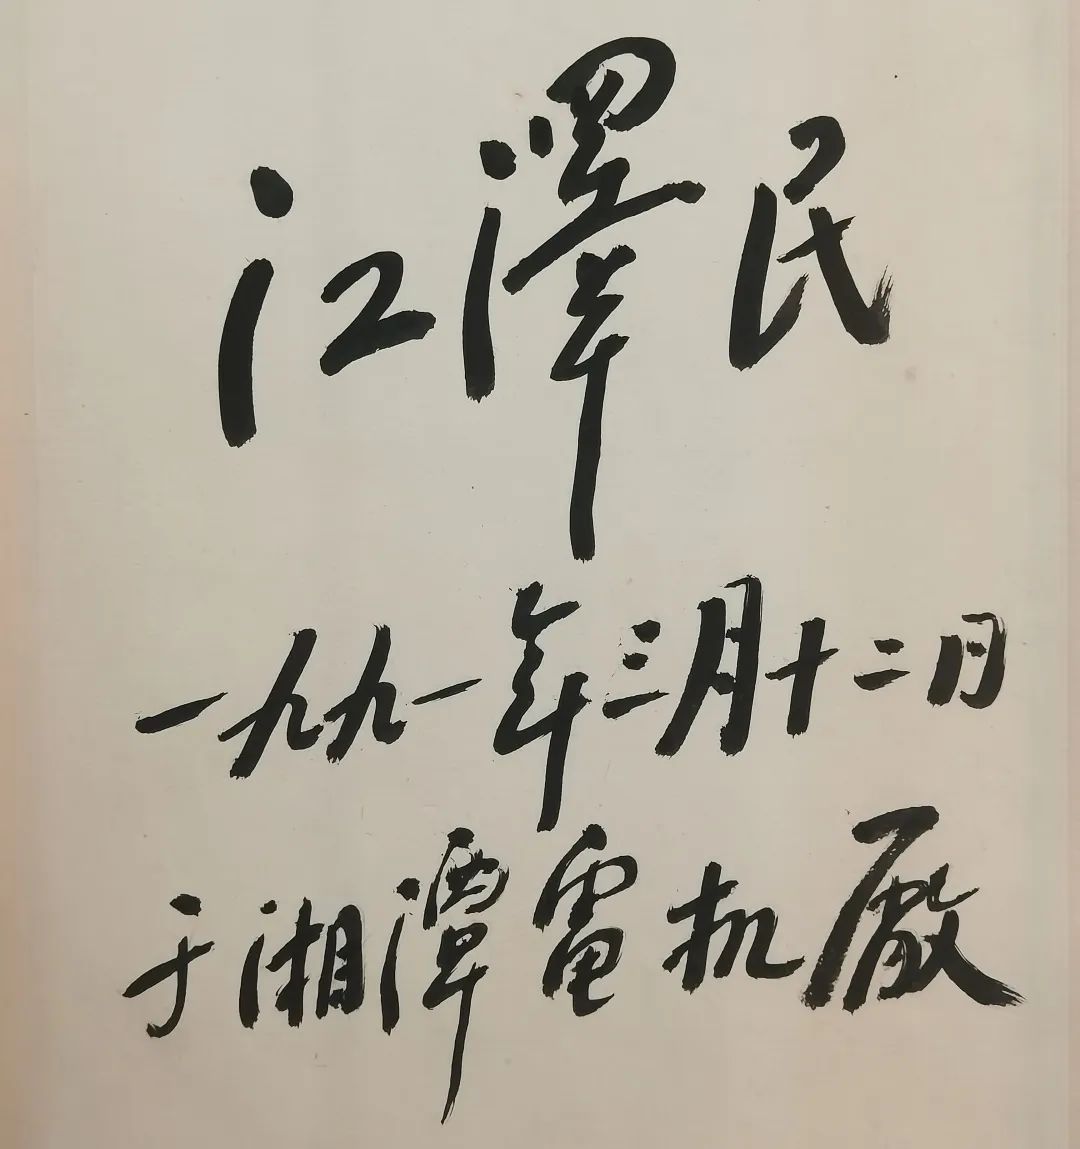 江澤民
一九九一年三月十二日
于湘潭電机廠